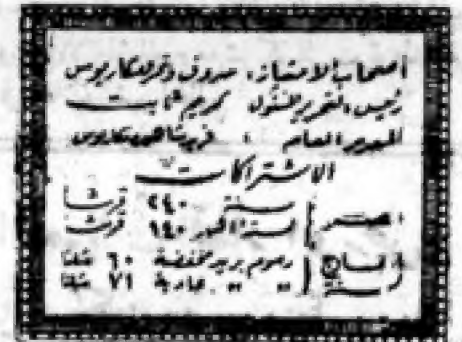 أصحاب الامتياز: صروف ونمر ومكاريوس
رئيس التحرير المسئول كريم ثابت
المدير العام : فريد شاهين مكاريوس
الاشتراكات
مصر سنة ٢٤٠ قرشا
لستة أشهر ١٤٠ قرشا
الخارج رسوم بريد مخفضة ٦٠ شلنا
سنة " " عادية ٧١ شلنا